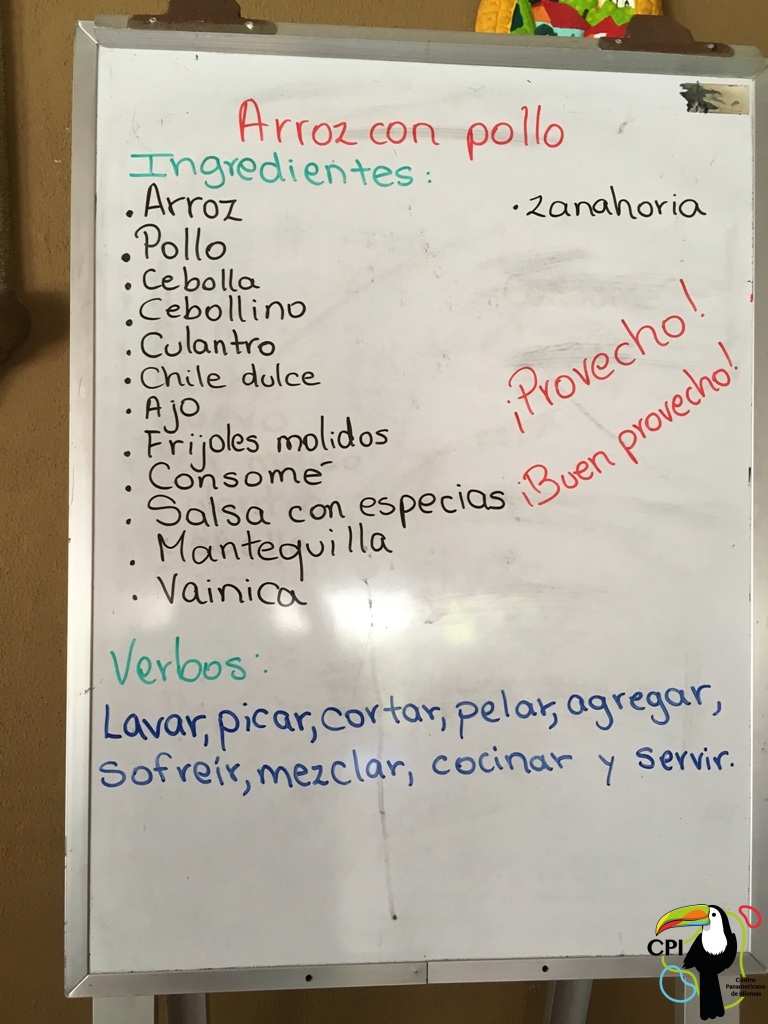 Arroz con pollo
Ingredientes:
· Arroz
· Pollo
· Cebolla
· Cebollino
· Culantro
· Chile dulce
· Ajo
· Frijoles molidos
· Consomé
· Salsa con especias
· Mantequilla
· Vainica
· zanahoria
¡Provecho!
¡Buen provecho!
Verbos:
Lavar, picar, cortar, pelar, agregar,
sofreír, mezclar, cocinar y servir.
CPI
Centro
Panamericano
de Idiomas